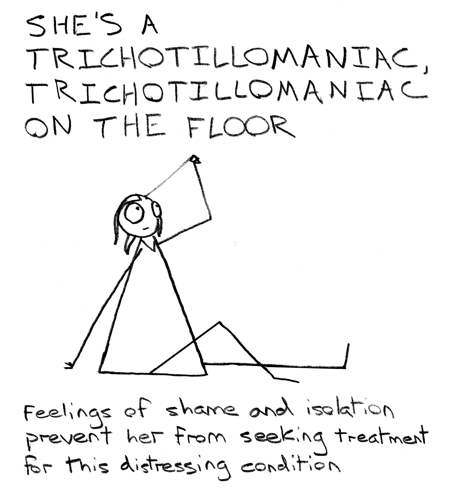 SHE'S A
TRICHOTILLOMANIAC,
TRICHOTILLOMANIAC
ON THE FLOOR
Feelings of shame and isolation
prevent her from seeking treatment
for this distressing condition